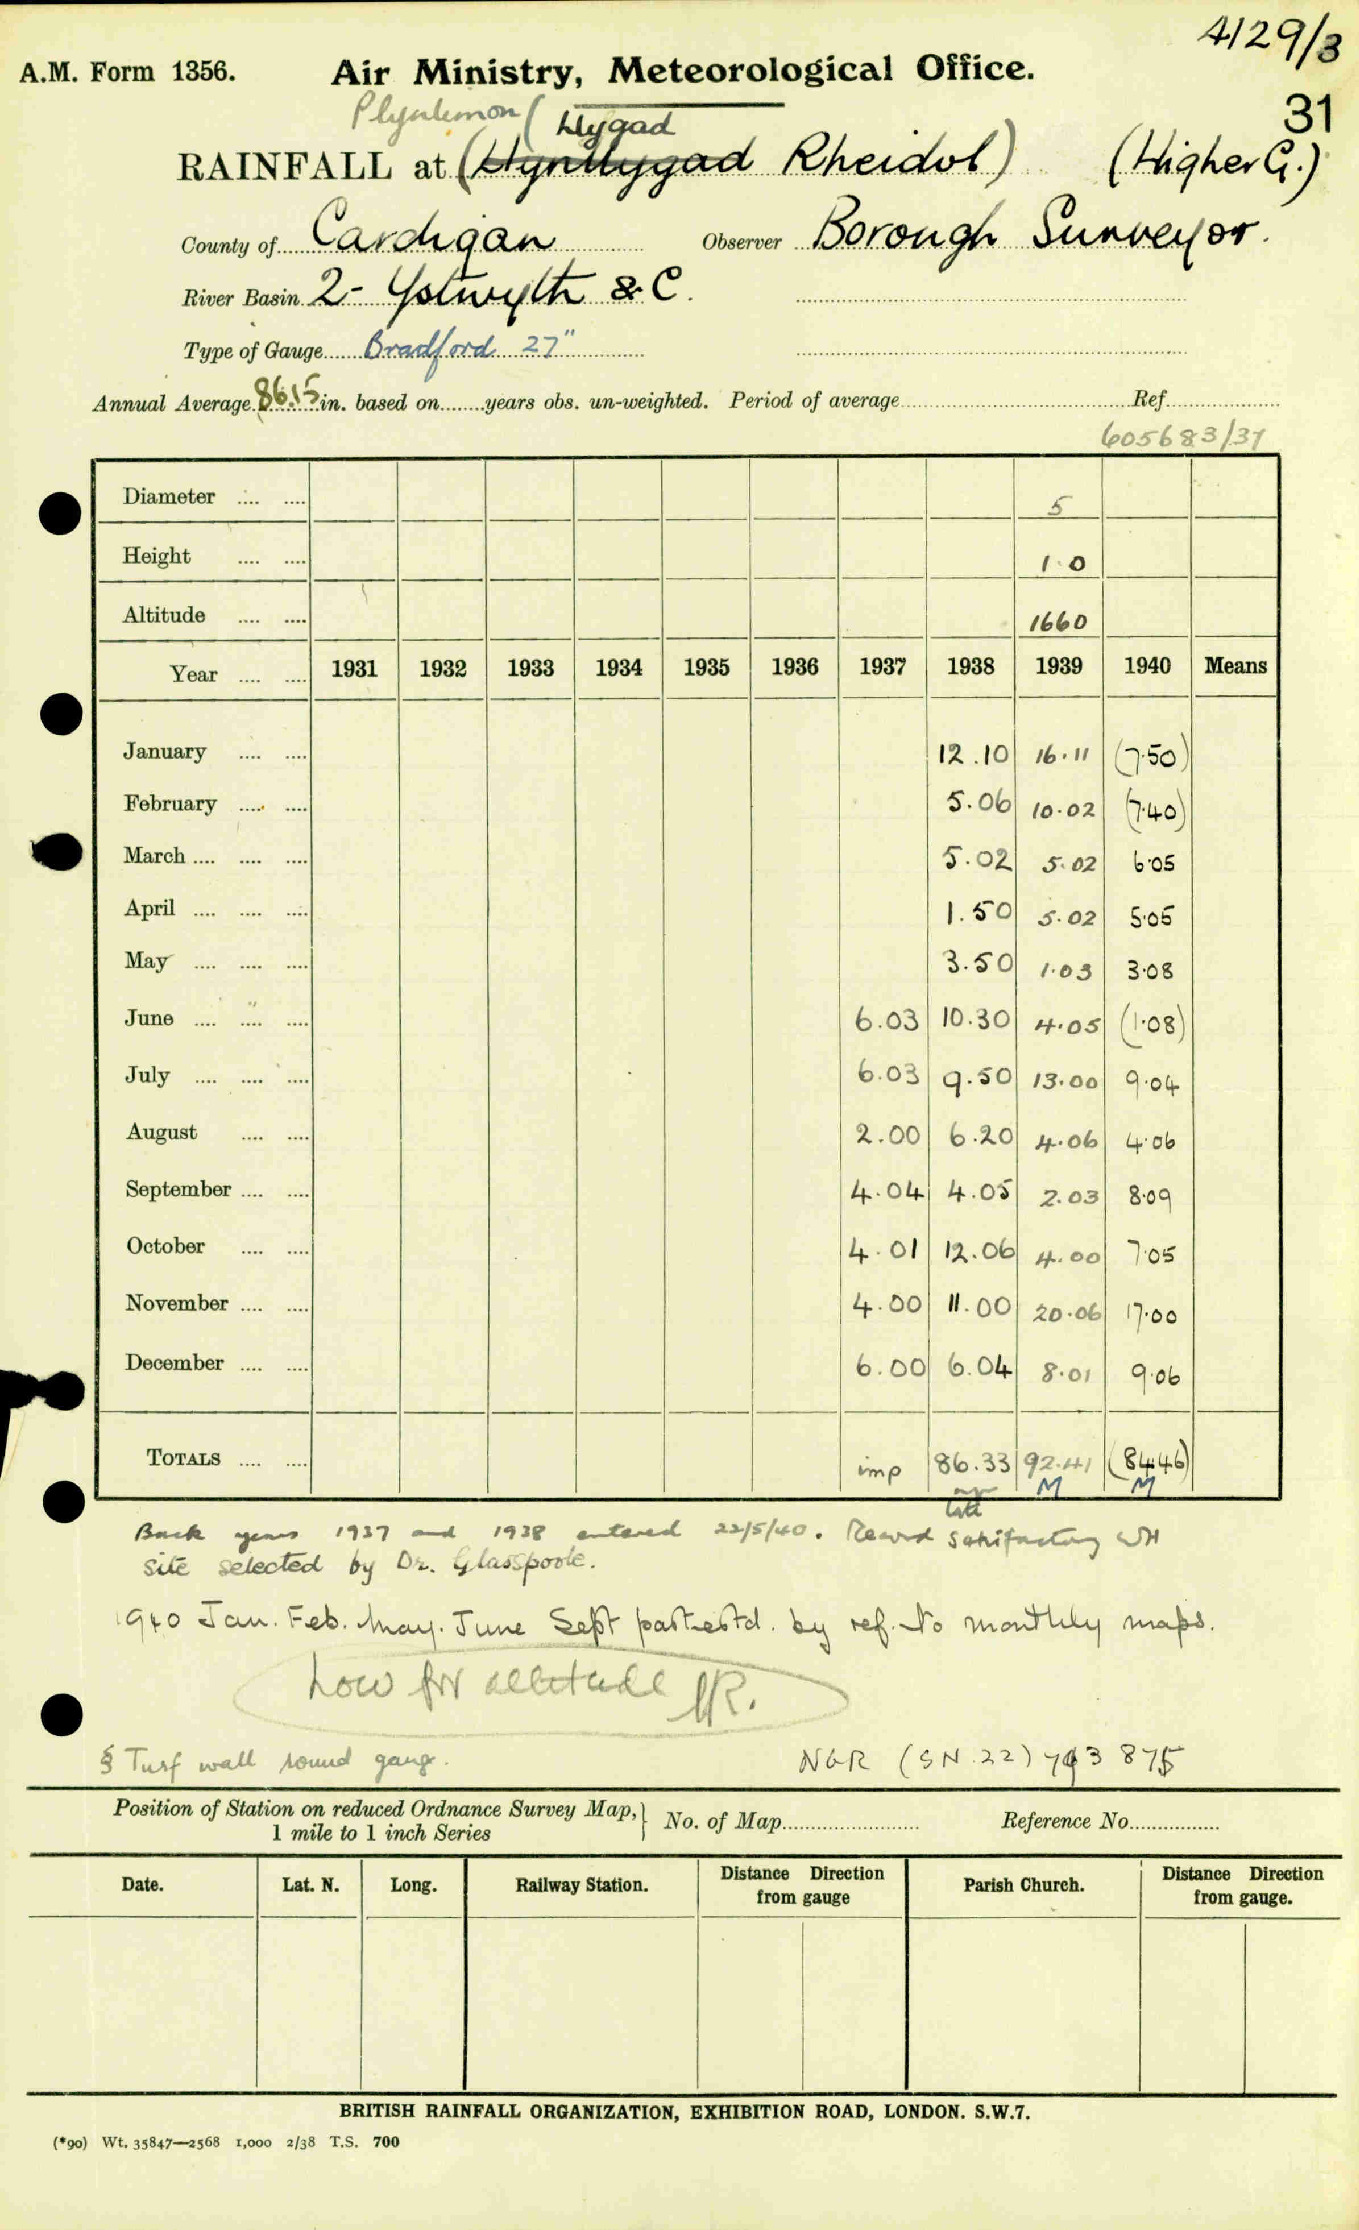 4129/3
A.M. Form 1356.
Air Ministry, Meteorological Office.
31
Plynlimon (Llygad
RAINFALL at (Llynllygad Rheidol) (Higher G.)
County of Cardigan Observer Borough Surveyor.
River Basin 2- Ystwyth & C.
Type of Gauge Bradford 27"
Annual Average 86.15 in. based on ........ years obs. un-weighted. Period of average ........ Ref ........
605683/37
Diameter .... .... 5
Height .... .... 1.0
Altitude .... .... 1660
Year .... .... 1931 1932 1933 1934 1935 1936 1937 1938 1939 1940 Means
January .... .... 12.10 16.11 (7.50)
February .... .... 5.06 10.02 (7.40)
March .... .... .... 5.02 5.02 6.05
April .... .... .... 1.50 5.02 5.05
May .... .... .... 3.50 1.03 3.08
June .... .... .... 6.03 10.30 4.05 (1.08)
July .... .... .... 6.03 9.50 13.00 9.04
August .... .... 2.00 6.20 4.06 4.06
September .... .... 4.04 4.05 2.03 8.09
October .... .... 4.01 12.06 4.00 7.05
November .... .... 4.00 11.00 20.06 17.00
December .... .... 6.00 6.04 8.01 9.06
TOTALS .... .... imp 86.33 92.41 (84.46)
M M
Back years 1937 and 1938 entered 22/5/40. Record satisfactory WH
site selected by Dr. Glasspoole.
1940 Jan. Feb. May. June Sept part estd. by ref. to monthly maps.
Low for altitude
§ Turf wall round gauge.
NGR (SN.22) 793 875
Position of Station on reduced Ordnance Survey Map,} No. of Map ........ Reference No. ........
1 mile to 1 inch Series
Date. Lat. N. Long. Railway Station. Distance from gauge Direction Parish Church. Distance from gauge. Direction
BRITISH RAINFALL ORGANIZATION, EXHIBITION ROAD, LONDON. S.W.7.
(*90) Wt. 35847—2568 1,000 2/38 T.S. 700